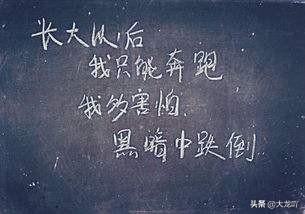 长大以后
我只能奔跑
我多害怕
黑暗中跌倒
头条 @大龙吖